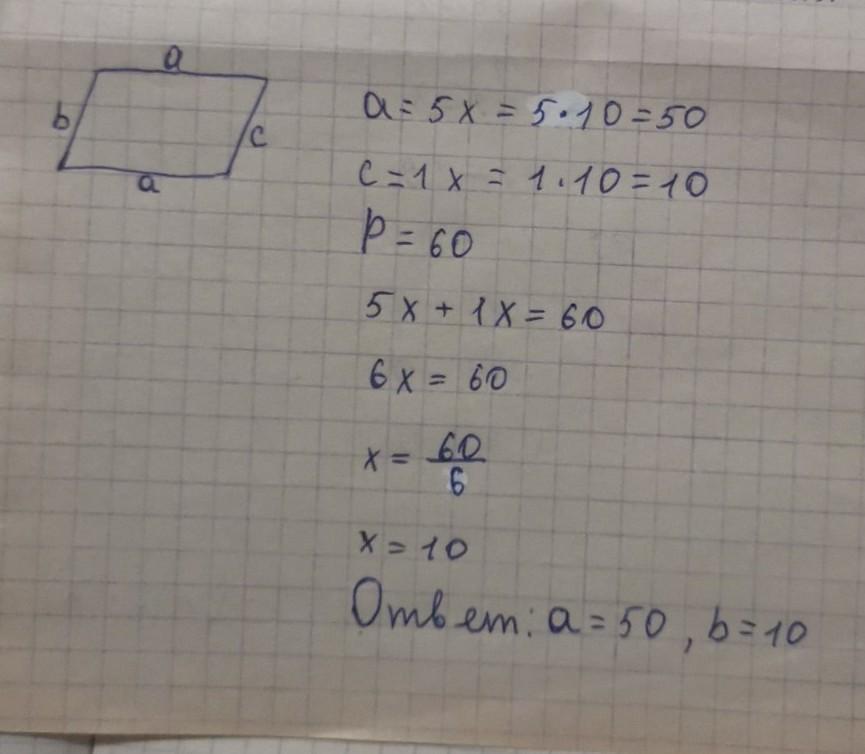 a
b
c
a
a = 5x = 5·10 = 50
c = 1x = 1·10 = 10
P = 60
5x + 1x = 60
6x = 60
x = 60/6
x = 10
Ответ: a = 50, b = 10